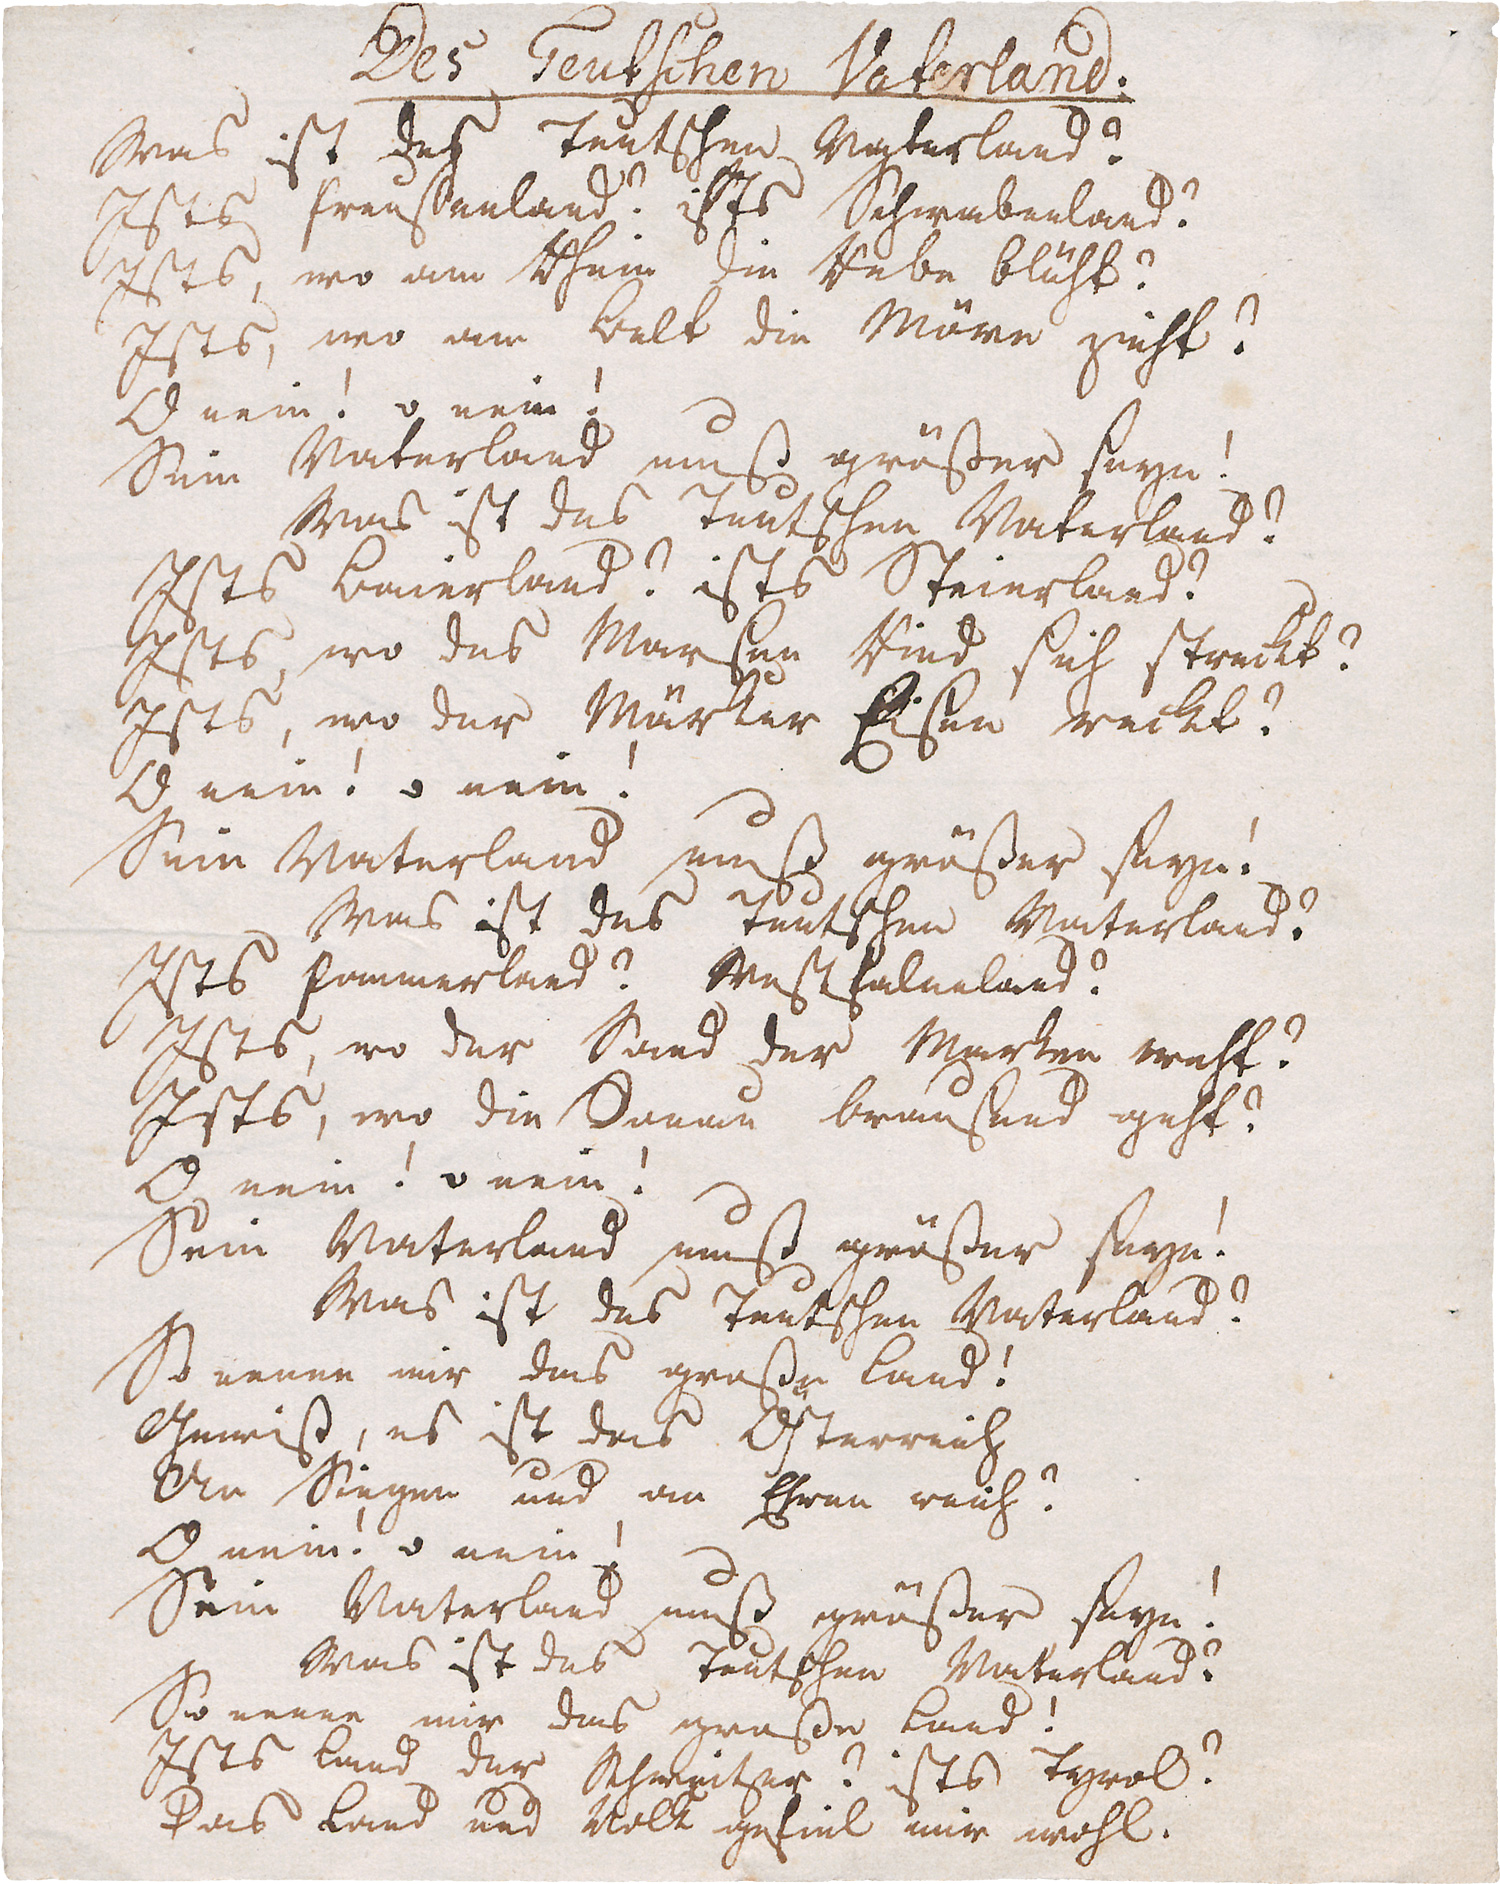 Des Teutschen Vaterland.
Was ist des Teutschen Vaterland?
Ists Preussenland? ists Schwabenland?
Ists, wo am Rhein die Rebe blüht?
Ists, wo am Belt die Möve zieht?
O nein! o nein!
Sein Vaterland muß größer seyn!
Was ist des Teutschen Vaterland?
Ists Baierland? ists Steierland?
Ists, wo des Marsen Rind sich streckt?
Ists, wo der Märker Eisen reckt?
O nein! o nein!
Sein Vaterland muß größer seyn!
Was ist des Teutschen Vaterland?
Ists Pommerland? Westfalenland?
Ists, wo der Sand der Marken weht?
Ists, wo die Donau brausend geht?
O nein! o nein!
Sein Vaterland muß größer seyn!
Was ist des Teutschen Vaterland?
So nenne mir das große Land!
Gewiß, es ist das Österreich
An Siegen und an Ehren reich?
O nein! o nein!
Sein Vaterland muß größer seyn!
Was ist des Teutschen Vaterland?
So nenne mir das große Land!
Ists Land der Schweitzer? ists Tyrol?
Das Land und Volk gefiel mir wohl.